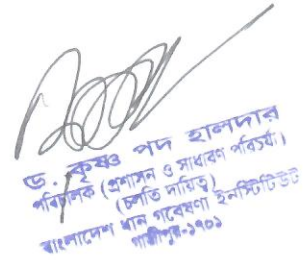 ড. কৃষ্ণ পদ হালদার
পরিচালক (প্রশাসন ও সাধারণ পরিচর্যা)
(চলতি দায়িত্ব)
বাংলাদেশ ধান গবেষণা ইনস্টিটিউট
গাজীপুর-১৭০১